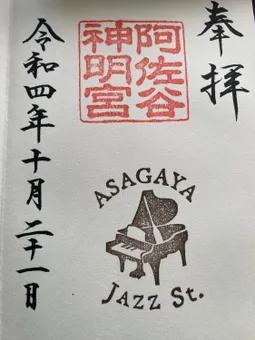 奉拝
阿佐谷
神明宮
ASAGAYA
JAZZ St.
令和四年十月二十一日